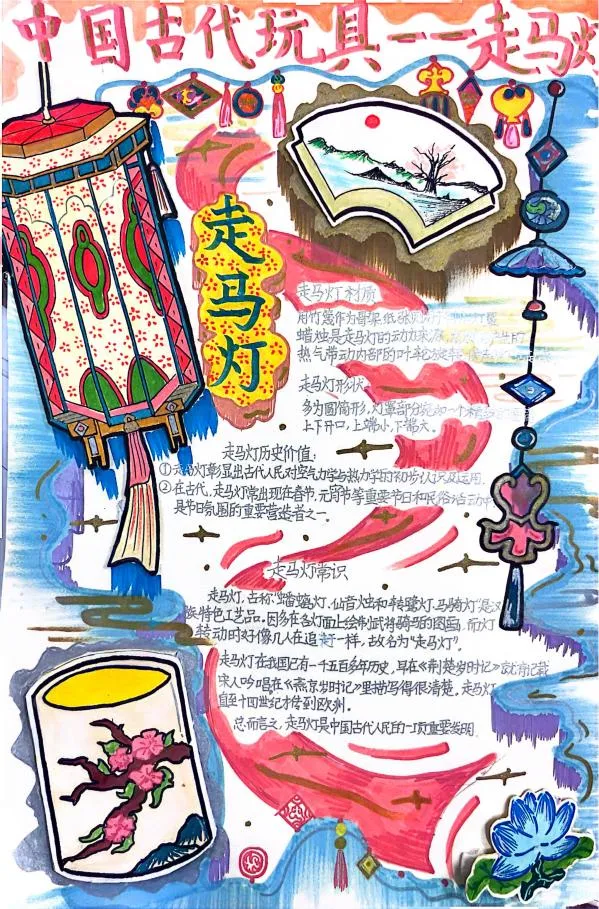 中国古代玩具——走马灯
走马灯
走马灯材质
用竹篾作为骨架,纸张
蜡烛是走马灯的动力来源,
热气带动内部的叶轮旋转
走马灯形状
多为圆筒形,灯罩部分宛如一个
上下开口,上端小,下端大。
走马灯历史价值:
①走马灯彰显出古代人民对空气力学与热力学的初步认识及运用
②在古代,走马灯常出现在春节,元宵节等重要节日和民俗活动中
是节日氛围的重要营造者之一
走马灯常识
走马灯,古称"蟠螭灯,仙音烛和转鹭灯,马骑灯"是汉
族特色工艺品。因多在各灯面上绘制武将骑马的图画,而灯
转动时好像几人在追 一样,故名为"走马灯"。
走马灯在我国已有一千五百多年历史,早在《荆楚岁时记》就有记载
宋人吟唱在《燕京岁时记》里描写得很清楚。走马灯
直至十四世纪才传到欧洲。
总而言之,走马灯是中国古代人民的一项重要发明.